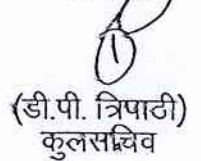 (डी.पी. त्रिपाठी)
कुलसचिव